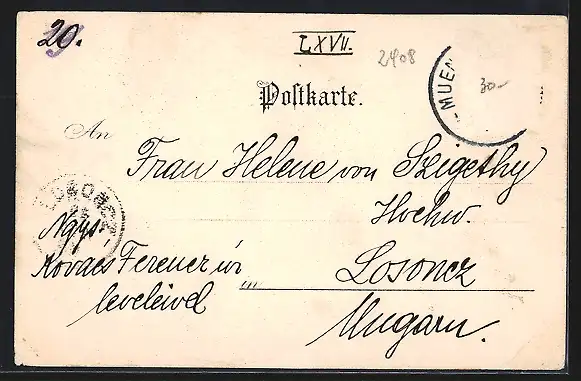 20.
LXVII.
2408
MUEN
30-
Postkarte.
An
Frau Helene von Szigethy
Hochw.
LOSONCZ
Ngys.
Kovács Ferencz úr
in Losoncz
levelével
Ungarn.